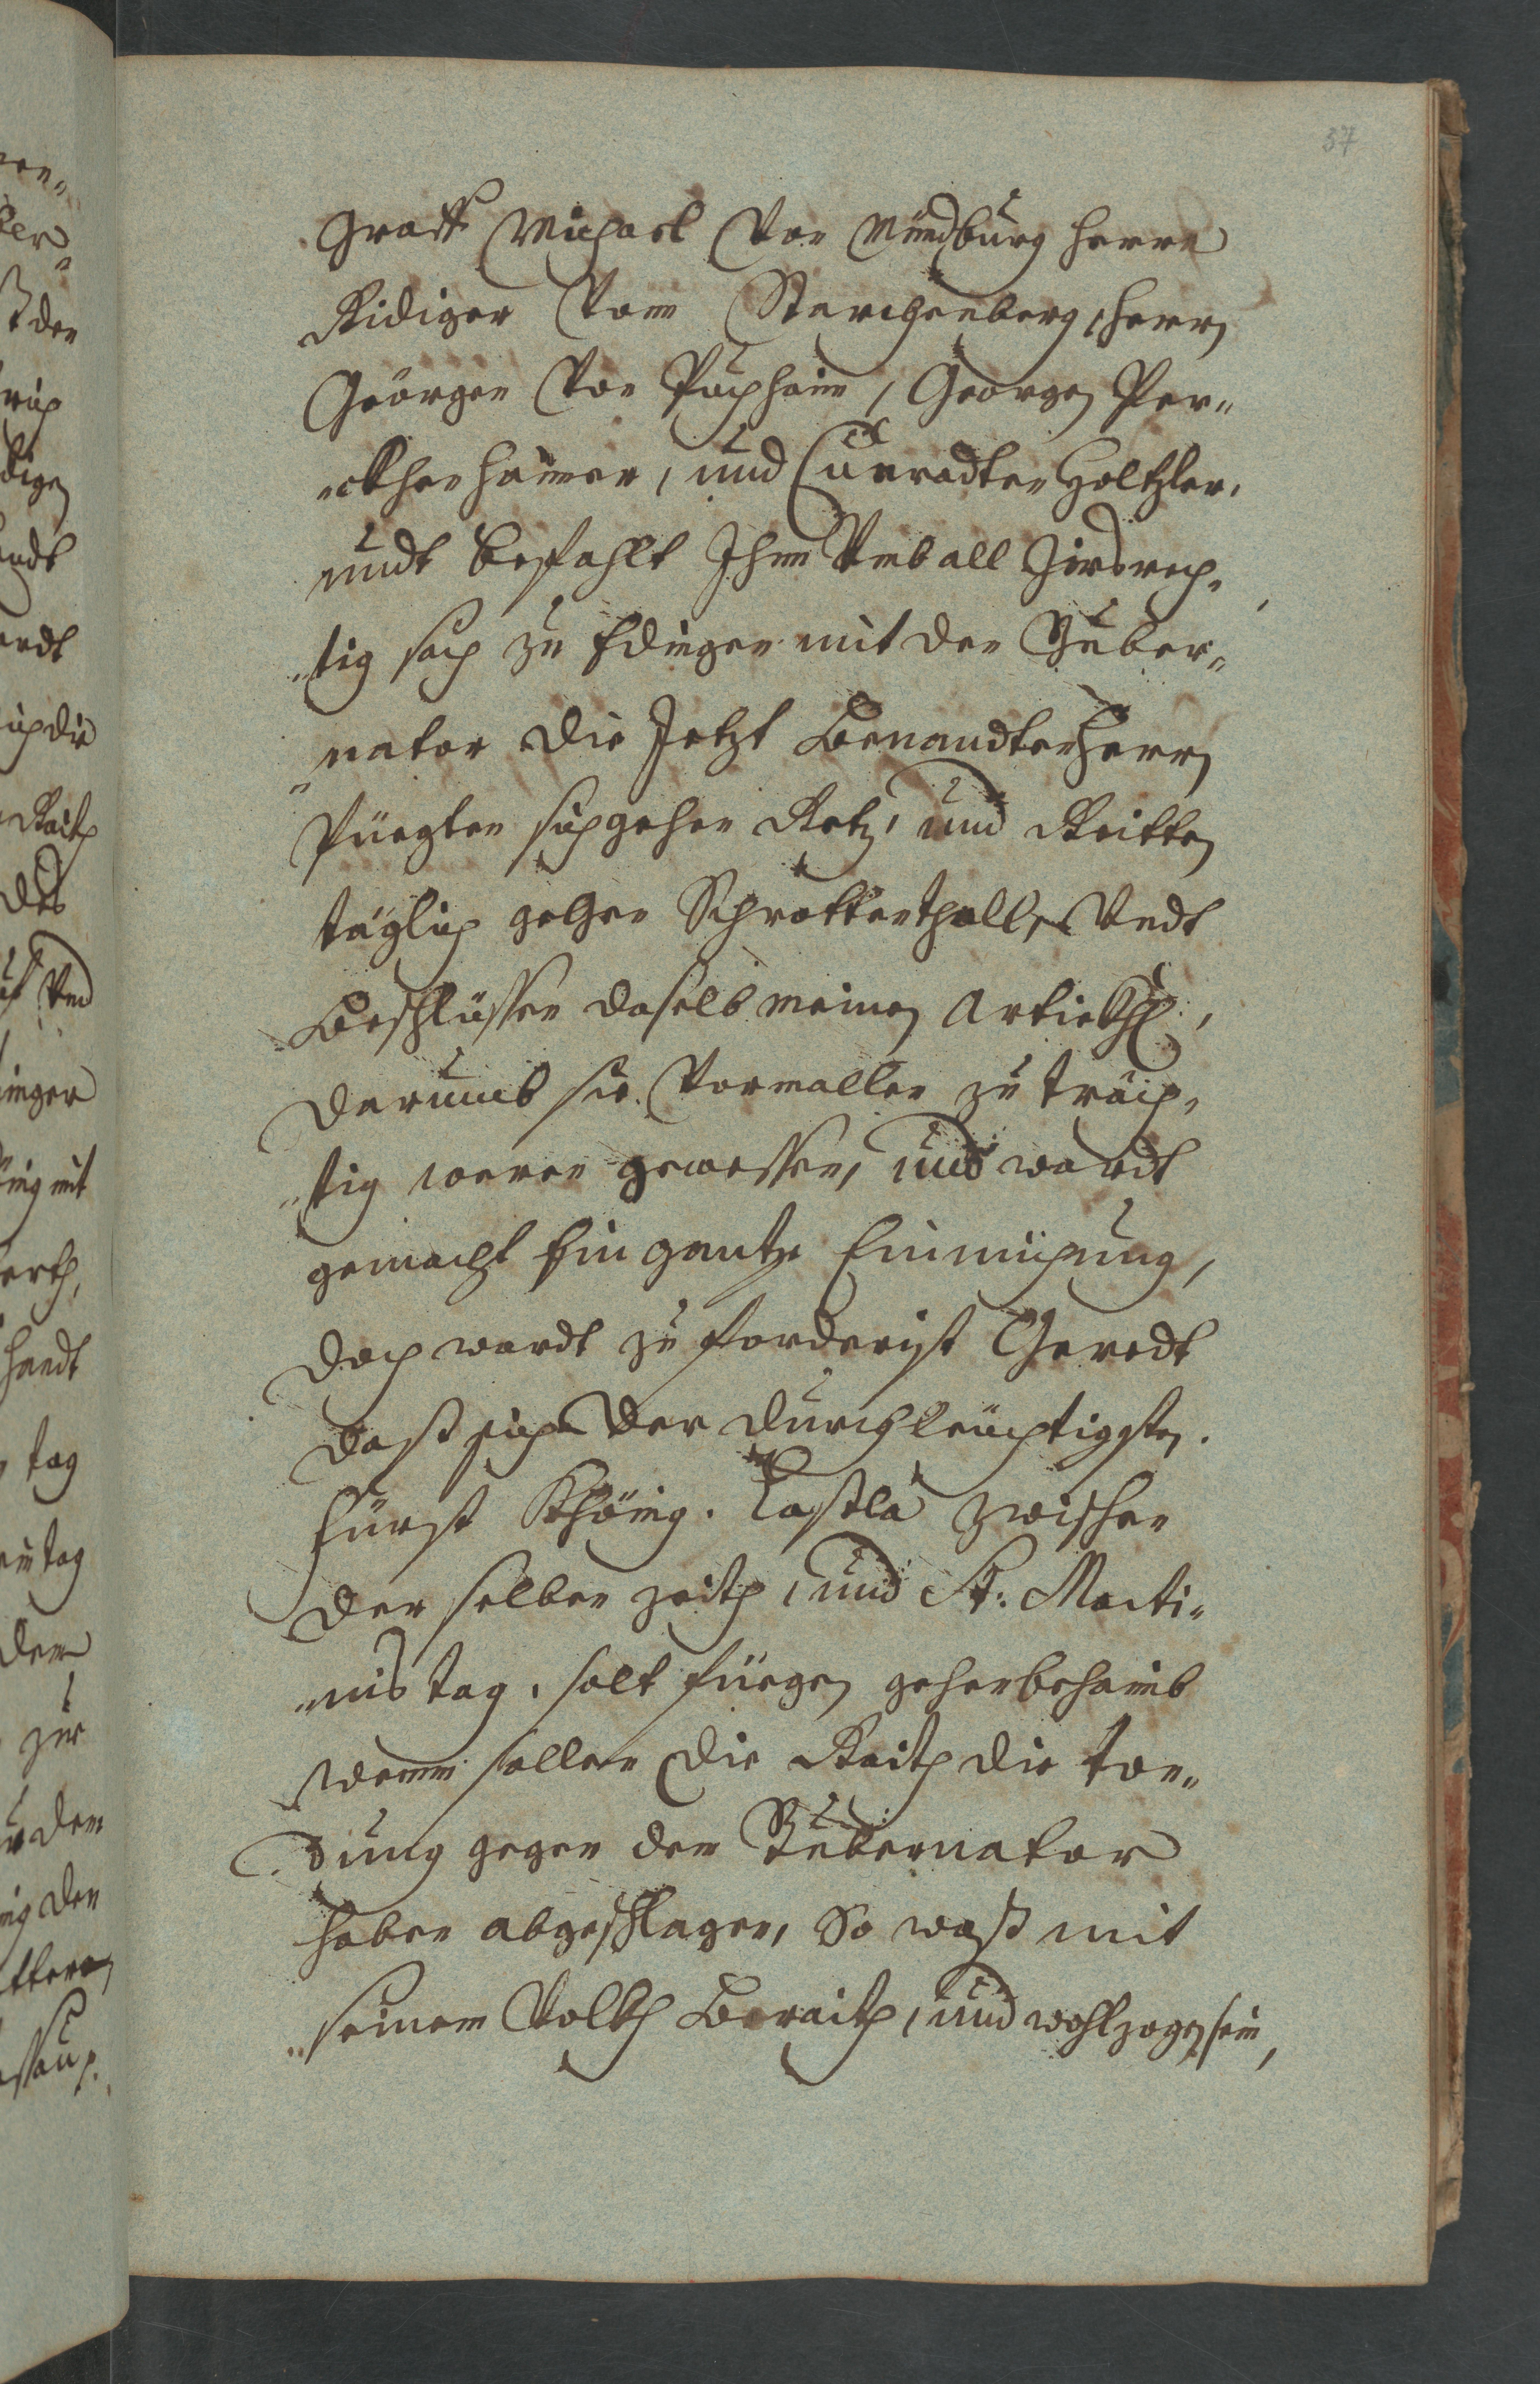 37
Graff Michael Von Maidburg Herrn
Ridiger Vom Starchenberg, Herrn
Geörgen Von Puchhaim, Georgen Per¬
¬ckhenhaimer, und Cunradten Holtzler,
undt befahlt Ihnn Umb all
¬tig sach zu thdingen mit den Guber¬
¬nator die Jetzt Benandten Herrn
Püegten sich gehen Retz, und Ritten
täglich gehen Schrattenthall, Undt
Beschlüssen daselb meinen Artickhl,
darumb sie Vormallen zu träch¬
¬tig waren gewessen, und wardt
gemacht Ein gantze Einnichung,
doch wardt zu forderist Geredt
daß sich der durchleüchtigste
Fürst Khönig Laßla zwischen
der selben zeith, und St: Marti¬
¬nis tag, solt fuegen gehen behaimb
wann sollen die Raith die tæ¬
¬dung gegen dem Gubernator
haben abgeschlagen, So waß mit
seinem Volkh Beraith, und wohlzogen sein,